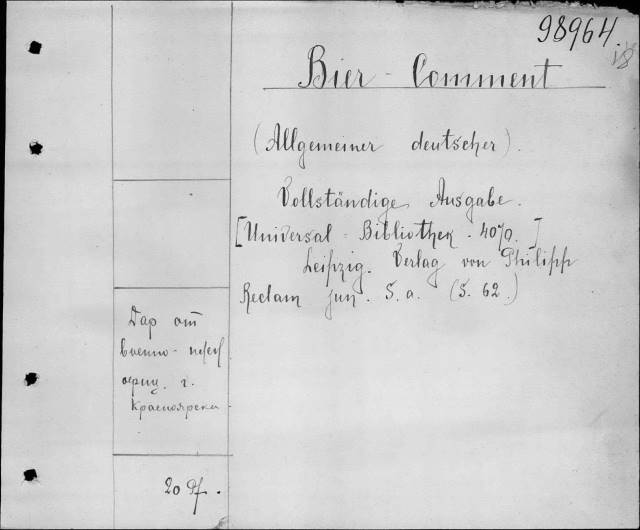 98964.
18
Bier - Comment
(Allgemeiner deutscher).
Vollständige Ausgabe.
[Universal - Bibliothek. 4070.]
Leipzig. Verlag von Philipp
Reclam jun. S. a. (S. 62.)
Дар от
военно-
офиц. г.
Красноярска
20 Pf.